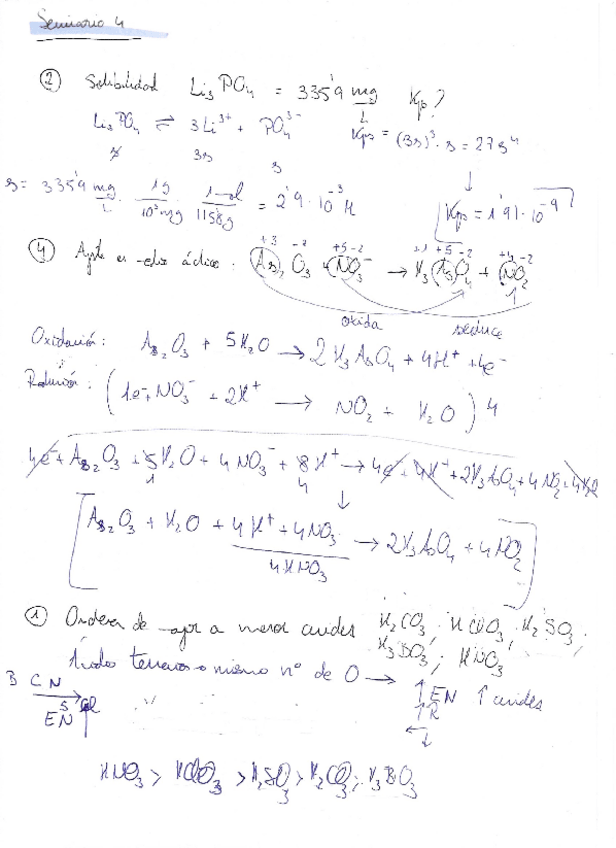 Seminario 4
② Solubilidad Li₃PO₄ = 335'9 mg/L Kps?
Li₃PO₄ ⇌ 3Li³⁺ + PO₄³⁻ Kps = (3s)³ · s = 27s⁴
s 3s s ↓
s = 335'9 mg/L · 1g/10³mg · 1mol/115'8g = 2'9·10⁻³ M Kps = 1'91·10⁻⁹
④ Ajusta en medio ácido: As₂O₃ + NO₃⁻ → H₃AsO₄ + NO₂
+3 -2 +5 -2 +1 +5 -2 +4 -2
oxida reduce
Oxidación: As₂O₃ + 5H₂O → 2H₃AsO₄ + 4H⁺ + 4e⁻
Reducción: (1e⁻ + NO₃⁻ + 2H⁺ → NO₂ + H₂O) 4
4e⁻ + As₂O₃ + 5H₂O + 4NO₃⁻ + 8H⁺ → 4e⁻ + 4H⁺ + 2H₃AsO₄ + 4NO₂ + 4H₂O
1 4 ↓
As₂O₃ + H₂O + 4H⁺ + 4NO₃⁻ → 2H₃AsO₄ + 4NO₂
4HNO₃
① Ordena de mayor a menor acidez H₂CO₃; HClO₃; H₂SO₃;
H₃BO₃; HNO₃
todos mismo nº de O → ↑EN ↑acidez
B C N
S Cl
EN
↑R
HNO₃ > HClO₃ > H₂SO₃ > H₂CO₃; H₃BO₃